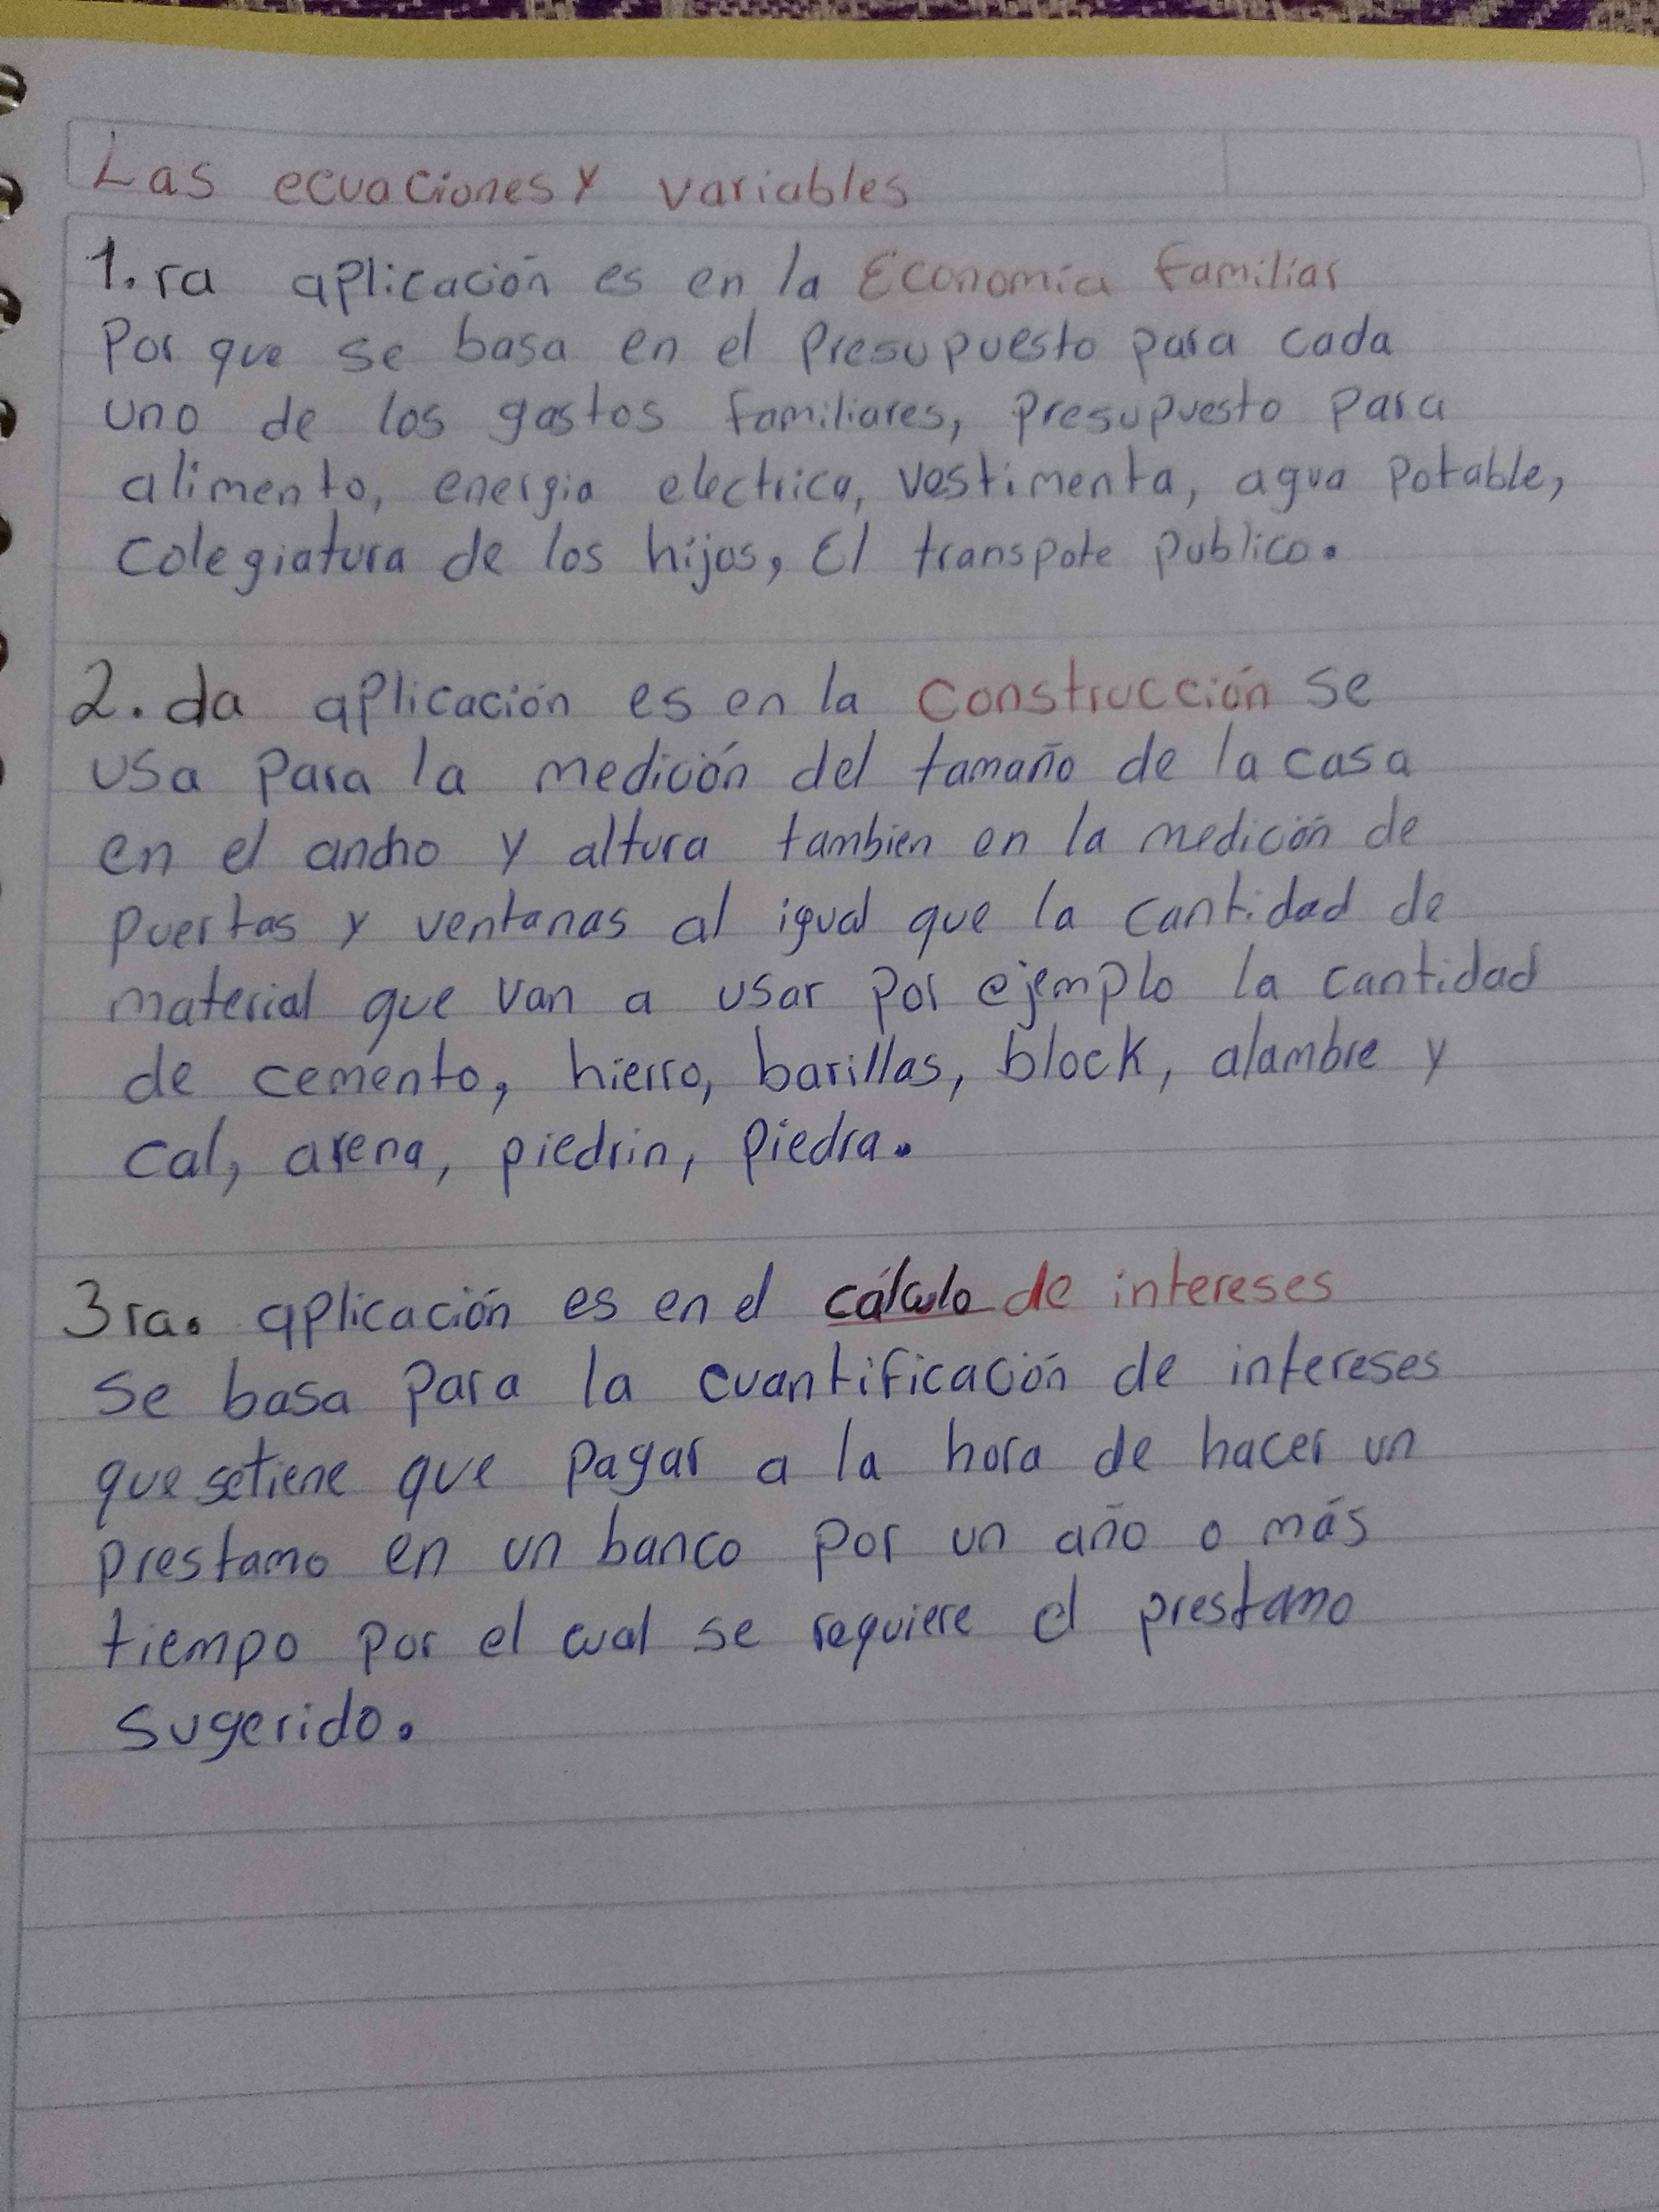 Las ecuaciones y variables
1.ra aplicación es en la Economía Familiar
Por que se basa en el Presupuesto para cada
uno de los gastos familiares, Presupuesto Para
alimento, energia electrica, vestimenta, agua Potable,
Colegiatura de los hijos, El transpote Publico.
2.da aplicación es en la Construcción se
usa Para la medición del tamaño de la casa
en el ancho y altura tambien en la medición de
Puertas y ventanas al igual que la cantidad de
material que van a usar Por ejemplo la cantidad
de cemento, hierro, barillas, block, alambre y
Cal, arena, piedrin, Piedra.
3ra. aplicación es en el cálculo de intereses
Se basa Para la cuantificación de intereses
que se tiene que Pagar a la hora de hacer un
Prestamo en un banco Por un año o más
tiempo Por el cual se requiere el prestamo
Sugerido.